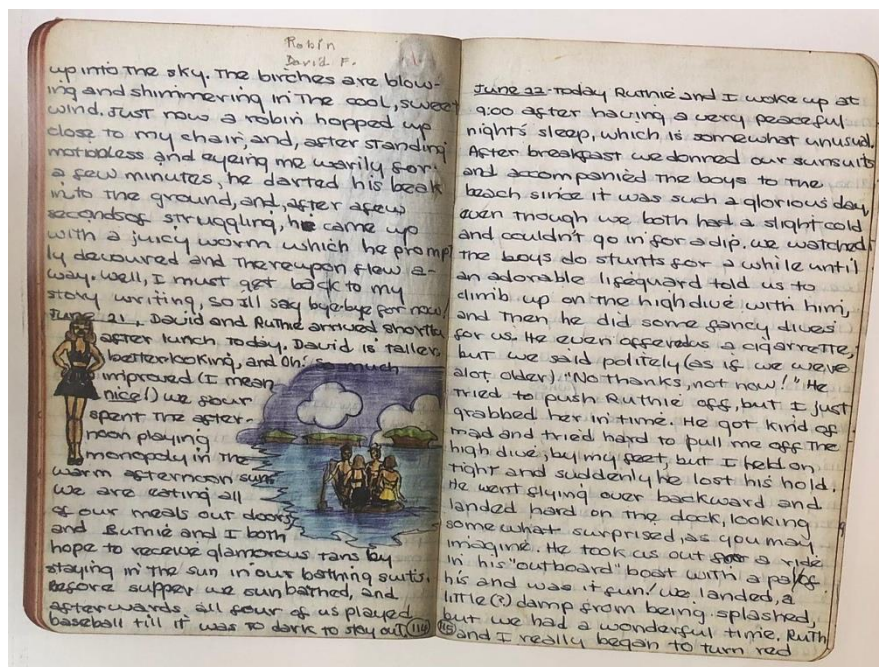 Robin
David F.
up into the sky. The birches are blow-
ing and shimmering in the cool, sweet
wind. Just now a robin hopped up
close to my chair, and, after standing
motionless and eyeing me warily for
a few minutes, he darted his beak
into the ground, and, after a few
seconds of struggling, he came up
with a juicy worm which he prompt
ly devoured and thereupon flew a-
way. Well, I must get back to my
story writing, so I'll say bye-bye for now!
June 21, David and Ruthie arrived shortly
after lunch today. David is taller,
better looking, and Oh! so much
improved (I mean
nice!) we four
spent the after-
noon playing
monopoly in the
warm afternoon sun.
We are eating all
of our meals out doors,
and Ruthie and I both
hope to receive glamorous tans by
staying in the sun in our bathing suits.
Before supper we sunbathed, and
afterwards all four of us played
baseball till it was to dark to stay out.
114
115
June 22 - Today Ruthie and I woke up at
9:00 after having a very peaceful
night's sleep, which is somewhat unusual.
After breakfast we donned our sunsuits
and accompanied the boys to the
beach since it was such a glorious day,
even though we both had a slight cold
and couldn't go in for a dip. We watched
the boys do stunts for a while until
an adorable lifeguard told us to
climb up on the highdive with him,
and then he did some fancy dives
for us. He even offered us a cigarrette,
but we said politely (as if we were
alot older) "No thanks, not now!" He
tried to push Ruthie off, but I just
grabbed her in time. He got kind of
mad and tried hard to pull me off the
high dive, by my feet, but I held on
tight and suddenly he lost his hold.
He went flying over backward and
landed hard on the dock, looking
somewhat surprised, as you may
imagine. He took us out for a ride
in his "outboard" boat with a pal of
his and was it fun! We landed, a
little (?) damp from being splashed,
but we had a wonderful time. Ruth
and I really began to turn red